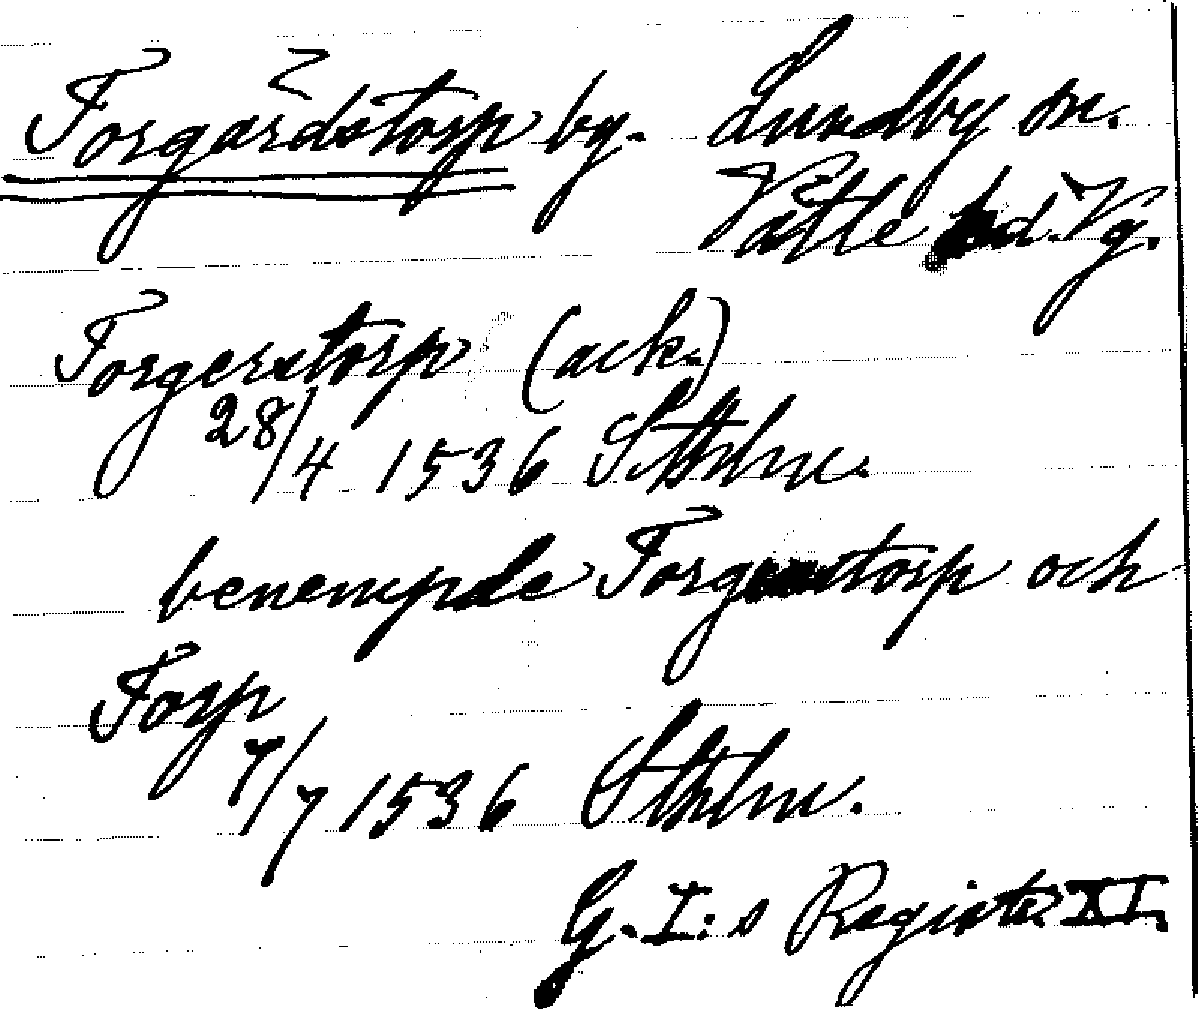 Torgårdstorp by. Lundby sn.
Vättle hd. Vg.
Torgerstorp (ack.)
28/4 1536 Sthlm.
benempde Torgerstorp och
Torp
7/7 1536 Sthlm.
G. I:s Registr. XI.